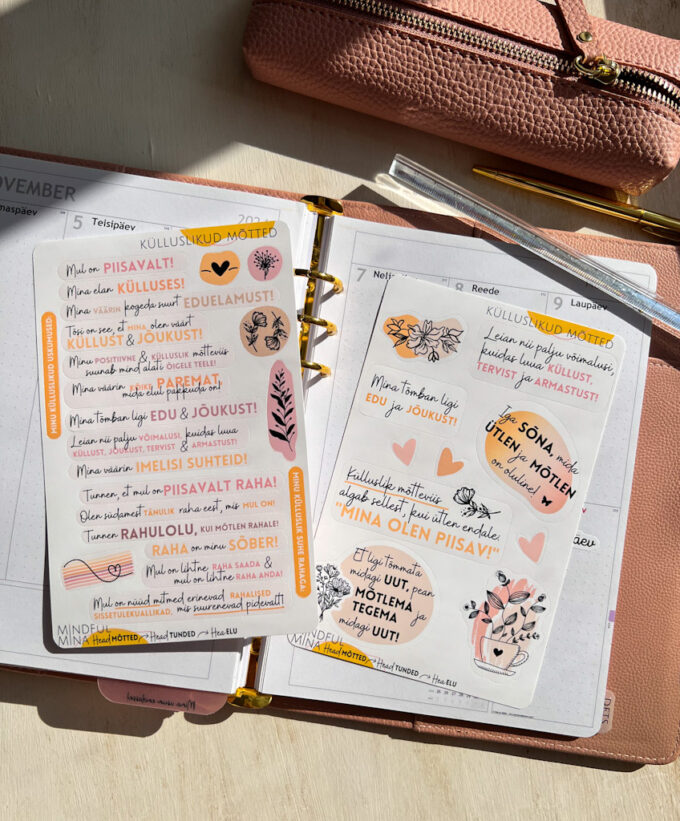 NOVEMBER
maspäev
5 Teisipäev
KÜLLUSLIKUD MÕTTED
Mul on PIISAVALT!
Mina elan KÜLLUSES!
Mina VÄÄRIN kogeda suurt EDUELAMUST!
Tõsi on see, et MINA olen väärt
KÜLLUST & JÕUKUST!
Minu POSITIIVNE & KÜLLUSLIK mõtteviis
suunab mind alati ÕIGELE TEELE!
Mina väärin KÕIKE PAREMAT,
mida elul pakkuda on!
Mina tõmban ligi EDU & JÕUKUST!
Leian nii palju VÕIMALUSI, kuidas luua
KÜLLUST, JÕUKUST, TERVIST & ARMASTUST!
Mina väärin IMELISI SUHTEID!
MINU KÜLLUSLIKUD USKUMUSED:
Tunnen, et mul on PIISAVALT RAHA!
Olen südamest TÄNULIK raha eest, mis MUL ON!
Tunnen RAHULOLU, KUI MÕTLEN RAHALE!
RAHA on minu SÕBER!
Mul on lihtne RAHA SAADA &
mul on lihtne RAHA ANDA!
Mul on nüüd mitmed erinevad RAHALISED
SISSETULEKUALLIKAD, mis suurenevad pidevalt!
MINU KÜLLUSLIK SUHE RAHAGA:
MINDFUL
MINA
Head MÕTTED → Head TUNDED → Hea ELU
7
8 Reede
9 Laupäev
KÜLLUSLIKUD MÕTTED
Leian nii palju võimalusi,
kuidas luua KÜLLUST,
TERVIST ja ARMASTUST!
Mina tõmban ligi
EDU ja JÕUKUST!
Iga SÕNA, mida
ÜTLEN ja MÕTLEN
on oluline!
Külluslik mõtteviis
algab sellest, kui ütlen endale:
"MINA OLEN PIISAV!"
Et ligi tõmmata
midagi UUT, pean
MÕTLEMA
TEGEMA
ja midagi UUT!
MINDFUL
MINA
Head MÕTTED → Head TUNDED → Hea ELU